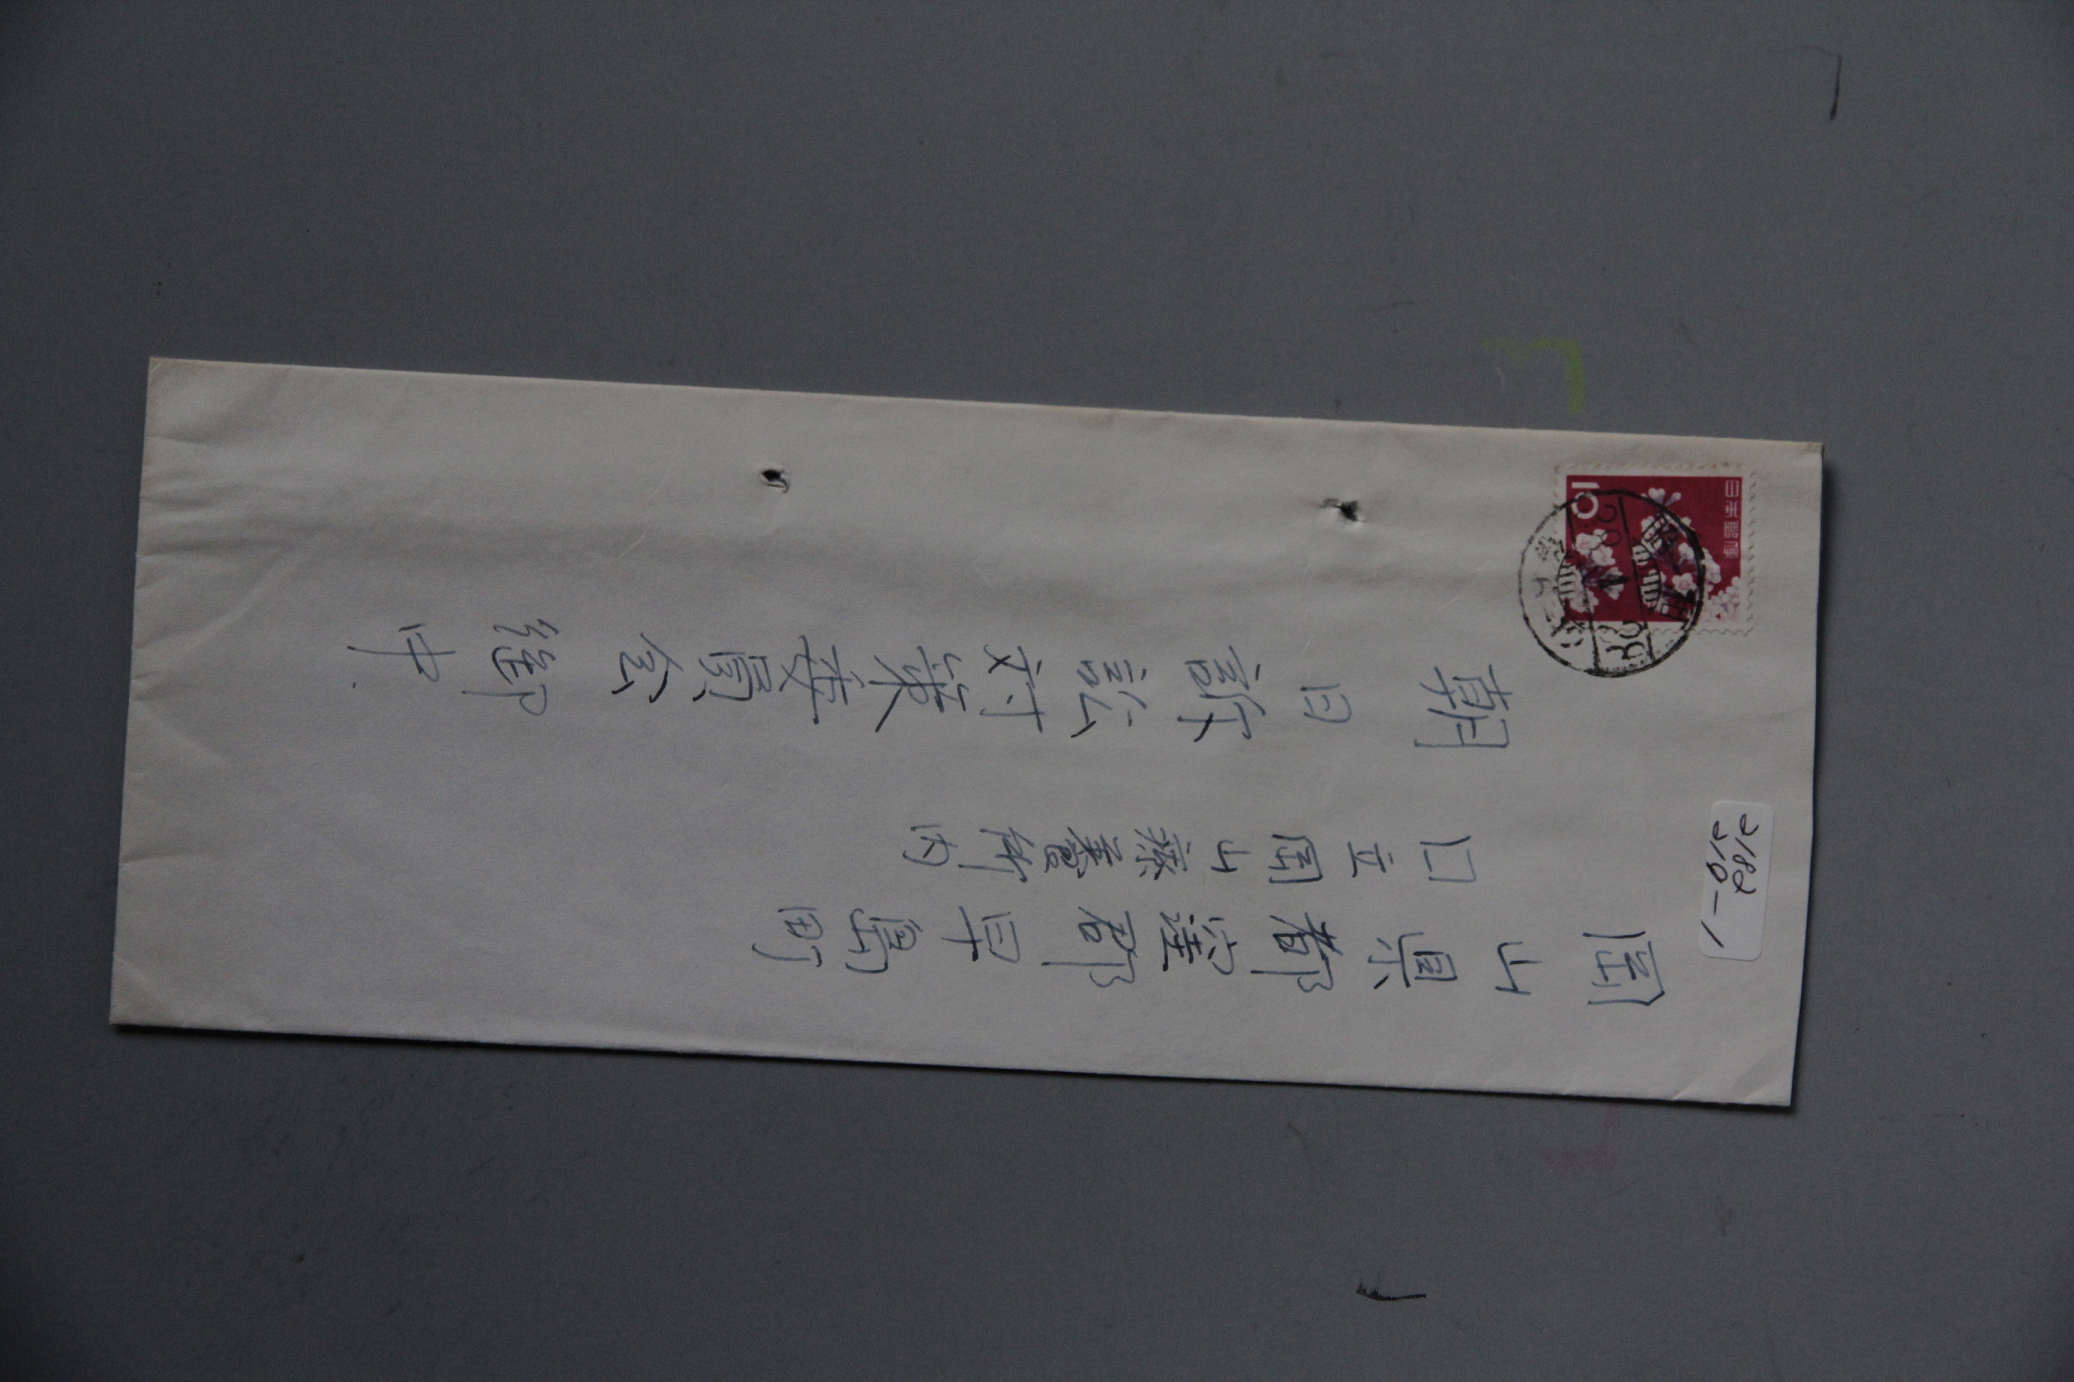 岡山県都窪郡早島町
国立岡山療養所内
朝日訴訟対策委員会 御中
日本郵便
10
2182
210-1